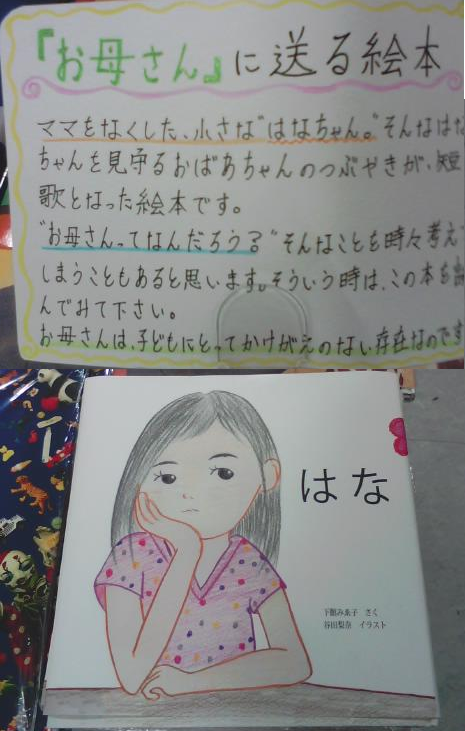 『お母さん』に送る絵本
ママをなくした、小さな"はなちゃん。"そんなはな
ちゃんを見守るおばあちゃんのつぶやきが、短
歌となった絵本です。
"お母さんってなんだろうる"そんなことを時々考えて
しまうこともあると思います。そういう時は、この本を読
んでみて下さい。
お母さんは、子どもにとってかけがえのない存在なのです
はな
下鶴み糸子 さく
谷田梨奈 イラスト